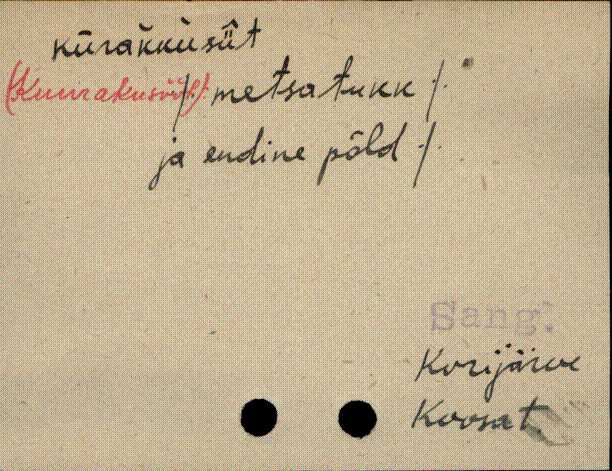 kūrak̀k̀ùsīìt
(Kuurakusiit) /. metsatukk /.
ja endine põld /.
Sang.
Korijärve
Koosat.